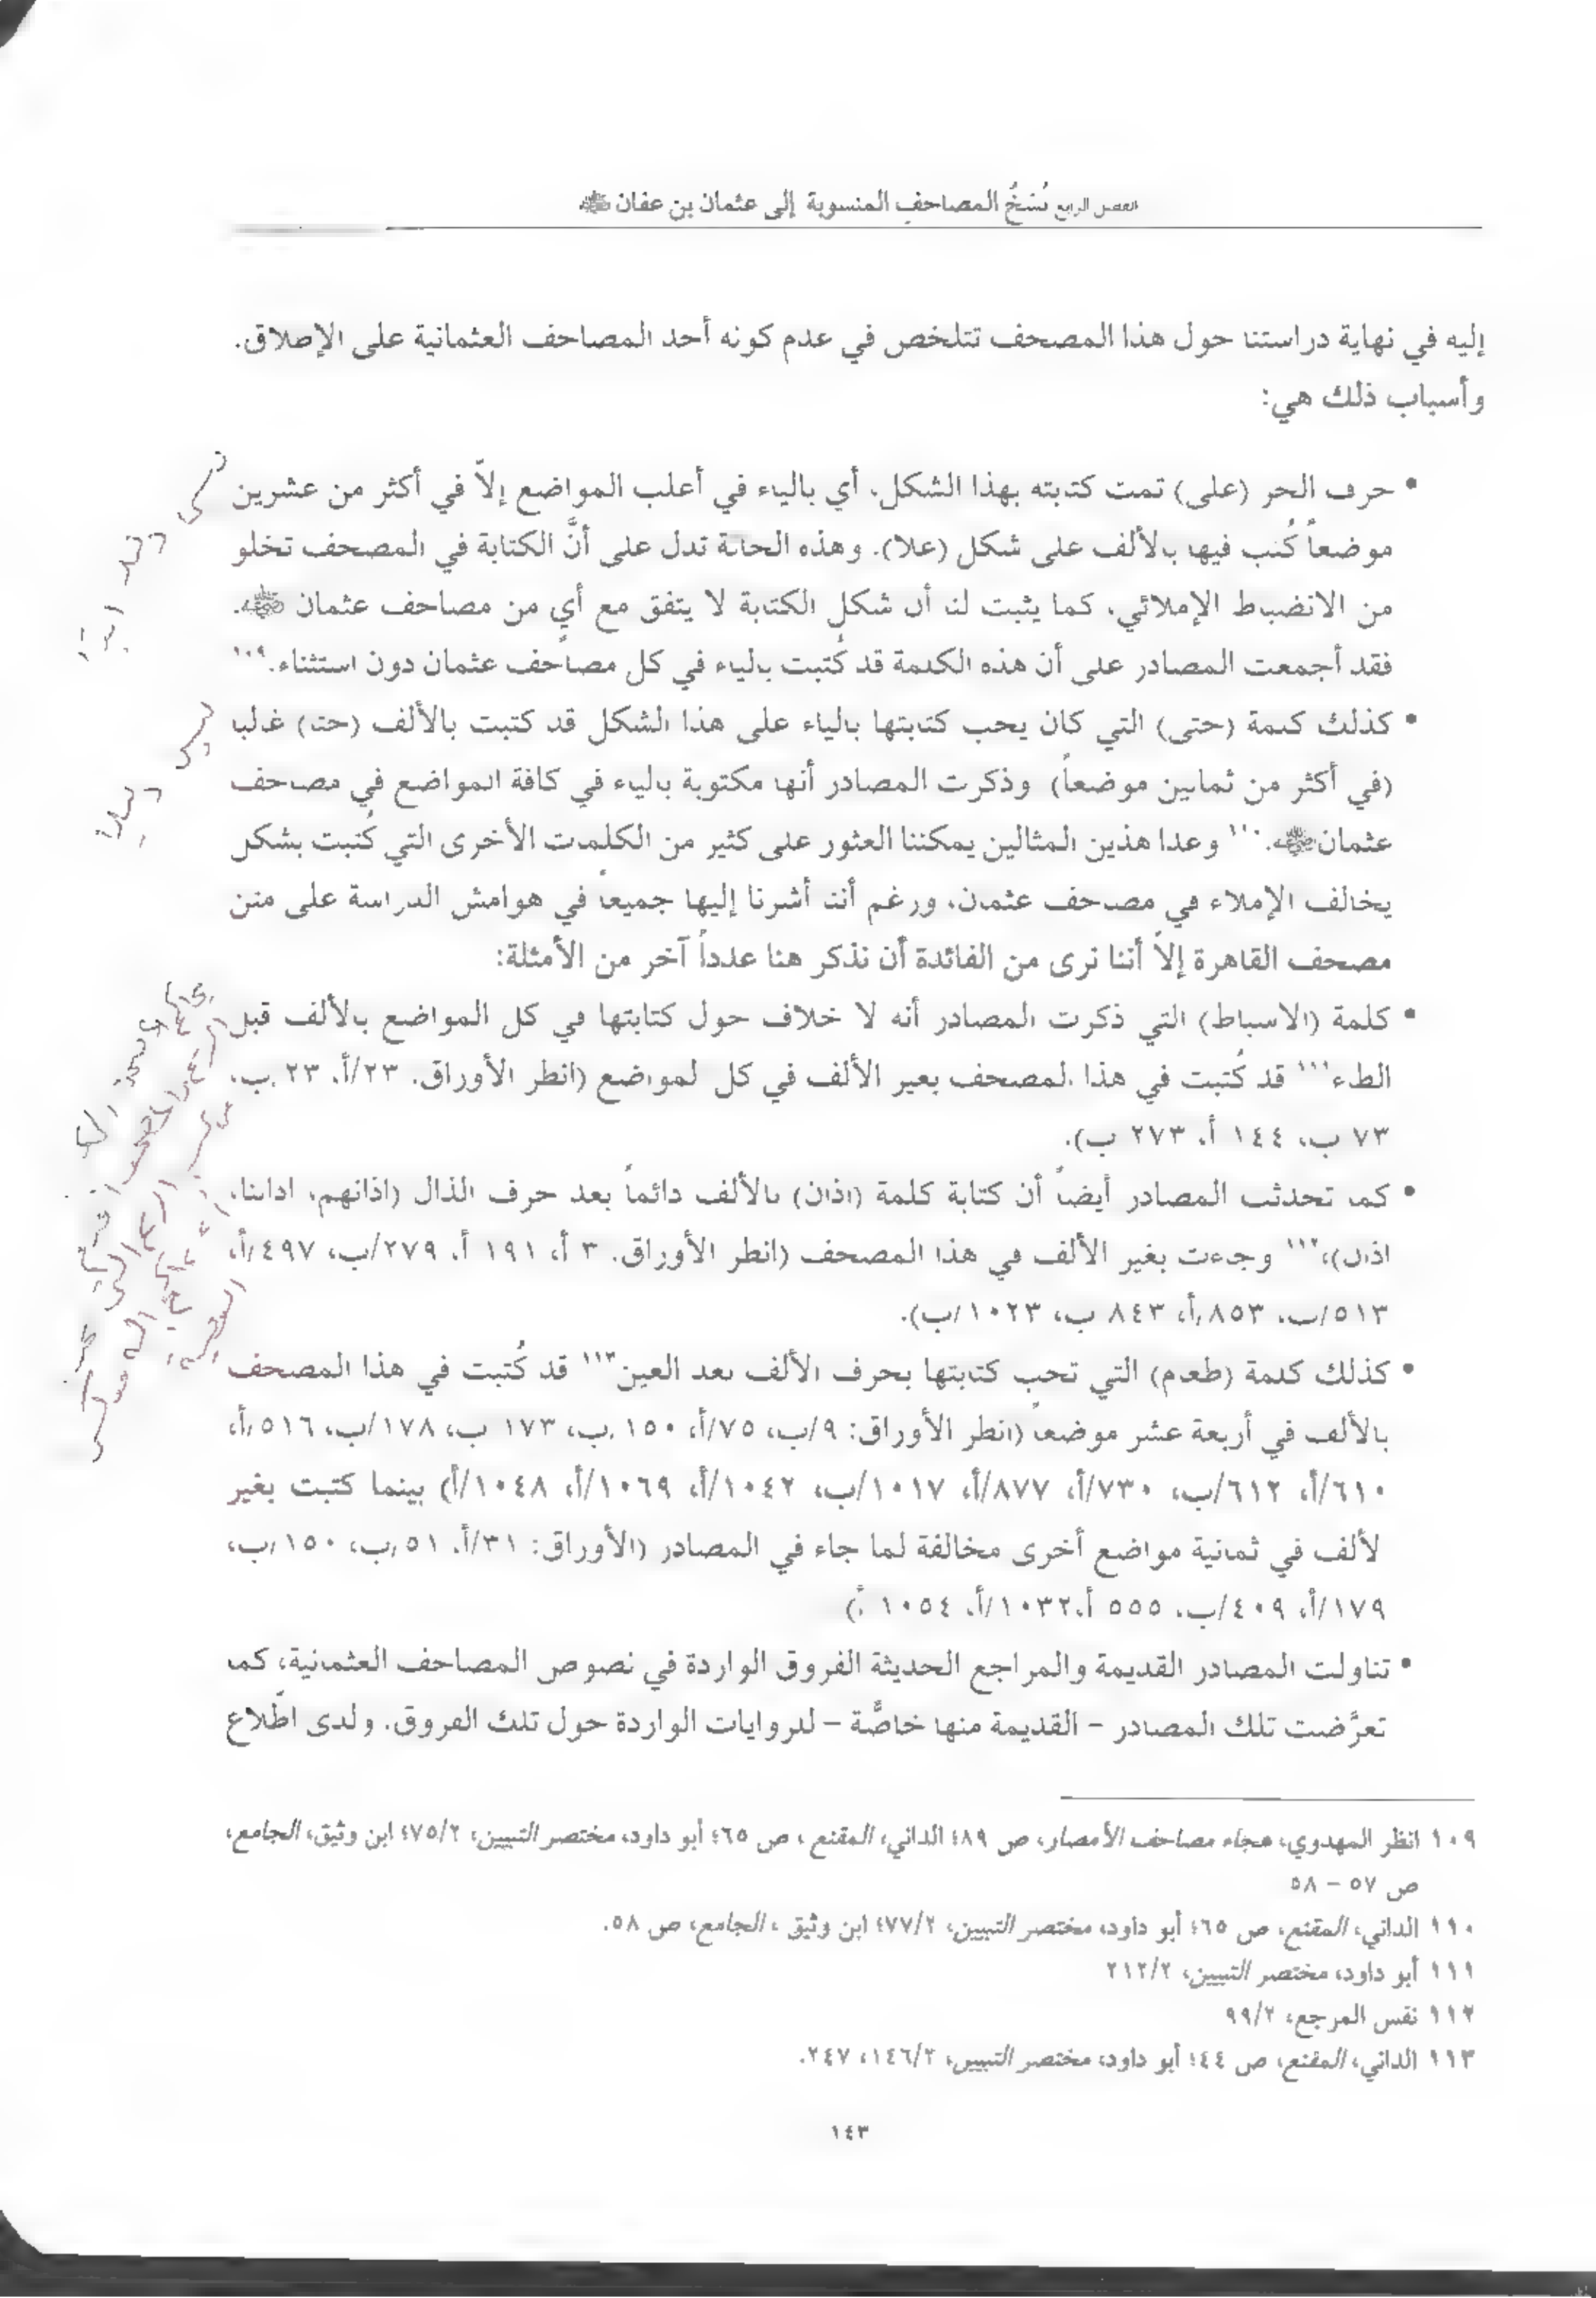 الفصل الرابع نُسَخُ المصاحف المنسوبة إلى عثمان بن عفان ﷺ
إليه في نهاية دراستنا حول هذا المصحف تتلخص في عدم كونه أحد المصاحف العثمانية على الإطلاق.
وأسباب ذلك هي:
• حرف الجر (على) تمت كتابته بهذا الشكل، أي بالياء في أغلب المواضع إلاّ في أكثر من عشرين
موضعاً كُتب فيها بالألف على شكل (علا). وهذه الحالة تدل على أنَّ الكتابة في المصحف تخلو
من الانضباط الإملائي، كما يثبت لنا أن شكل الكتابة لا يتفق مع أي من مصاحف عثمان ﷺ.
فقد أجمعت المصادر على أن هذه الكلمة قد كُتبت بالياء في كل مصاحف عثمان دون استثناء.١٠٩
• كذلك كلمة (حتى) التي كان يجب كتابتها بالياء على هذا الشكل قد كتبت بالألف (حتا) غالبا
(في أكثر من ثمانين موضعاً) وذكرت المصادر أنها مكتوبة بالياء في كافة المواضع في مصاحف
عثمان ﷺ.١١٠ وعدا هذين المثالين يمكننا العثور على كثير من الكلمات الأخرى التي كُتبت بشكل
يخالف الإملاء في مصاحف عثمان، ورغم أننا أشرنا إليها جميعاً في هوامش الدراسة على متن
مصحف القاهرة إلاّ أننا نرى من الفائدة أن نذكر هنا عدداً آخر من الأمثلة:
• كلمة (الاسباط) التي ذكرت المصادر أنه لا خلاف حول كتابتها في كل المواضع بالألف قبل
الطاء١١١ قد كُتبت في هذا المصحف بغير الألف في كل المواضع (انظر الأوراق. ٢٣/أ، ٢٣/ب،
٧٣ ب، ١٤٤ أ، ٢٧٣ ب).
• كما تحدثت المصادر أيضاً أن كتابة كلمة (اذان) بالألف دائماً بعد حرف الذال (اذانهم، اداننا،
اذان)،١١٢ وجاءت بغير الألف في هذا المصحف (انظر الأوراق. ٣ أ، ١٩١ أ، ٢٧٩/ب، ٤٩٧/أ،
٥١٣/ب، ٨٥٣/أ، ٨٤٣ ب، ١٠٢٣/ب).
• كذلك كلمة (طعام) التي تجب كتابتها بحرف الألف بعد العين١١٣ قد كُتبت في هذا المصحف
بالألف في أربعة عشر موضعاً (انظر الأوراق: ٩/ب، ٧٥/أ، ١٥٠/ب، ١٧٣ ب، ١٧٨/ب، ٥١٦/أ،
٦١٠/أ، ٦١٢/ب، ٧٣٠/أ، ٨٧٧/أ، ١٠١٧/ب، ١٠٤٢/أ، ١٠٦٩/أ، ١٠٤٨/أ) بينما كتبت بغير
لألف في ثمانية مواضع أخرى مخالفة لما جاء في المصادر (الأوراق: ٣١/أ، ٥١/ب، ١٥٠/ب،
١٧٩/أ، ٤٠٩/ب، ٥٥٥ أ، ١٠٣٢/أ، ١٠٥٤ أ)
• تناولت المصادر القديمة والمراجع الحديثة الفروق الواردة في نصوص المصاحف العثمانية، كما
تعرَّضت تلك المصادر – القديمة منها خاصَّة – للروايات الواردة حول تلك الفروق. ولدى اطّلاع
١٠٩ انظر المهدوي، هجاء مصاحف الأمصار، ص ٨٩؛ الداني، المقنع، ص ٦٥؛ أبو داود، مختصر التبيين، ٧٥/٢؛ ابن وثيق، الجامع،
ص ٥٧ – ٥٨
١١٠ الداني، المقنع، ص ٦٥؛ أبو داود، مختصر التبيين، ٧٧/٢؛ ابن وثيق، الجامع، ص ٥٨.
١١١ أبو داود، مختصر التبيين، ٢١٢/٢
١١٢ نفس المرجع، ٩٩/٢
١١٣ الداني، المقنع، ص ٤٤؛ أبو داود، مختصر التبيين، ١٤٦/٢، ٢٤٧.
١٤٣